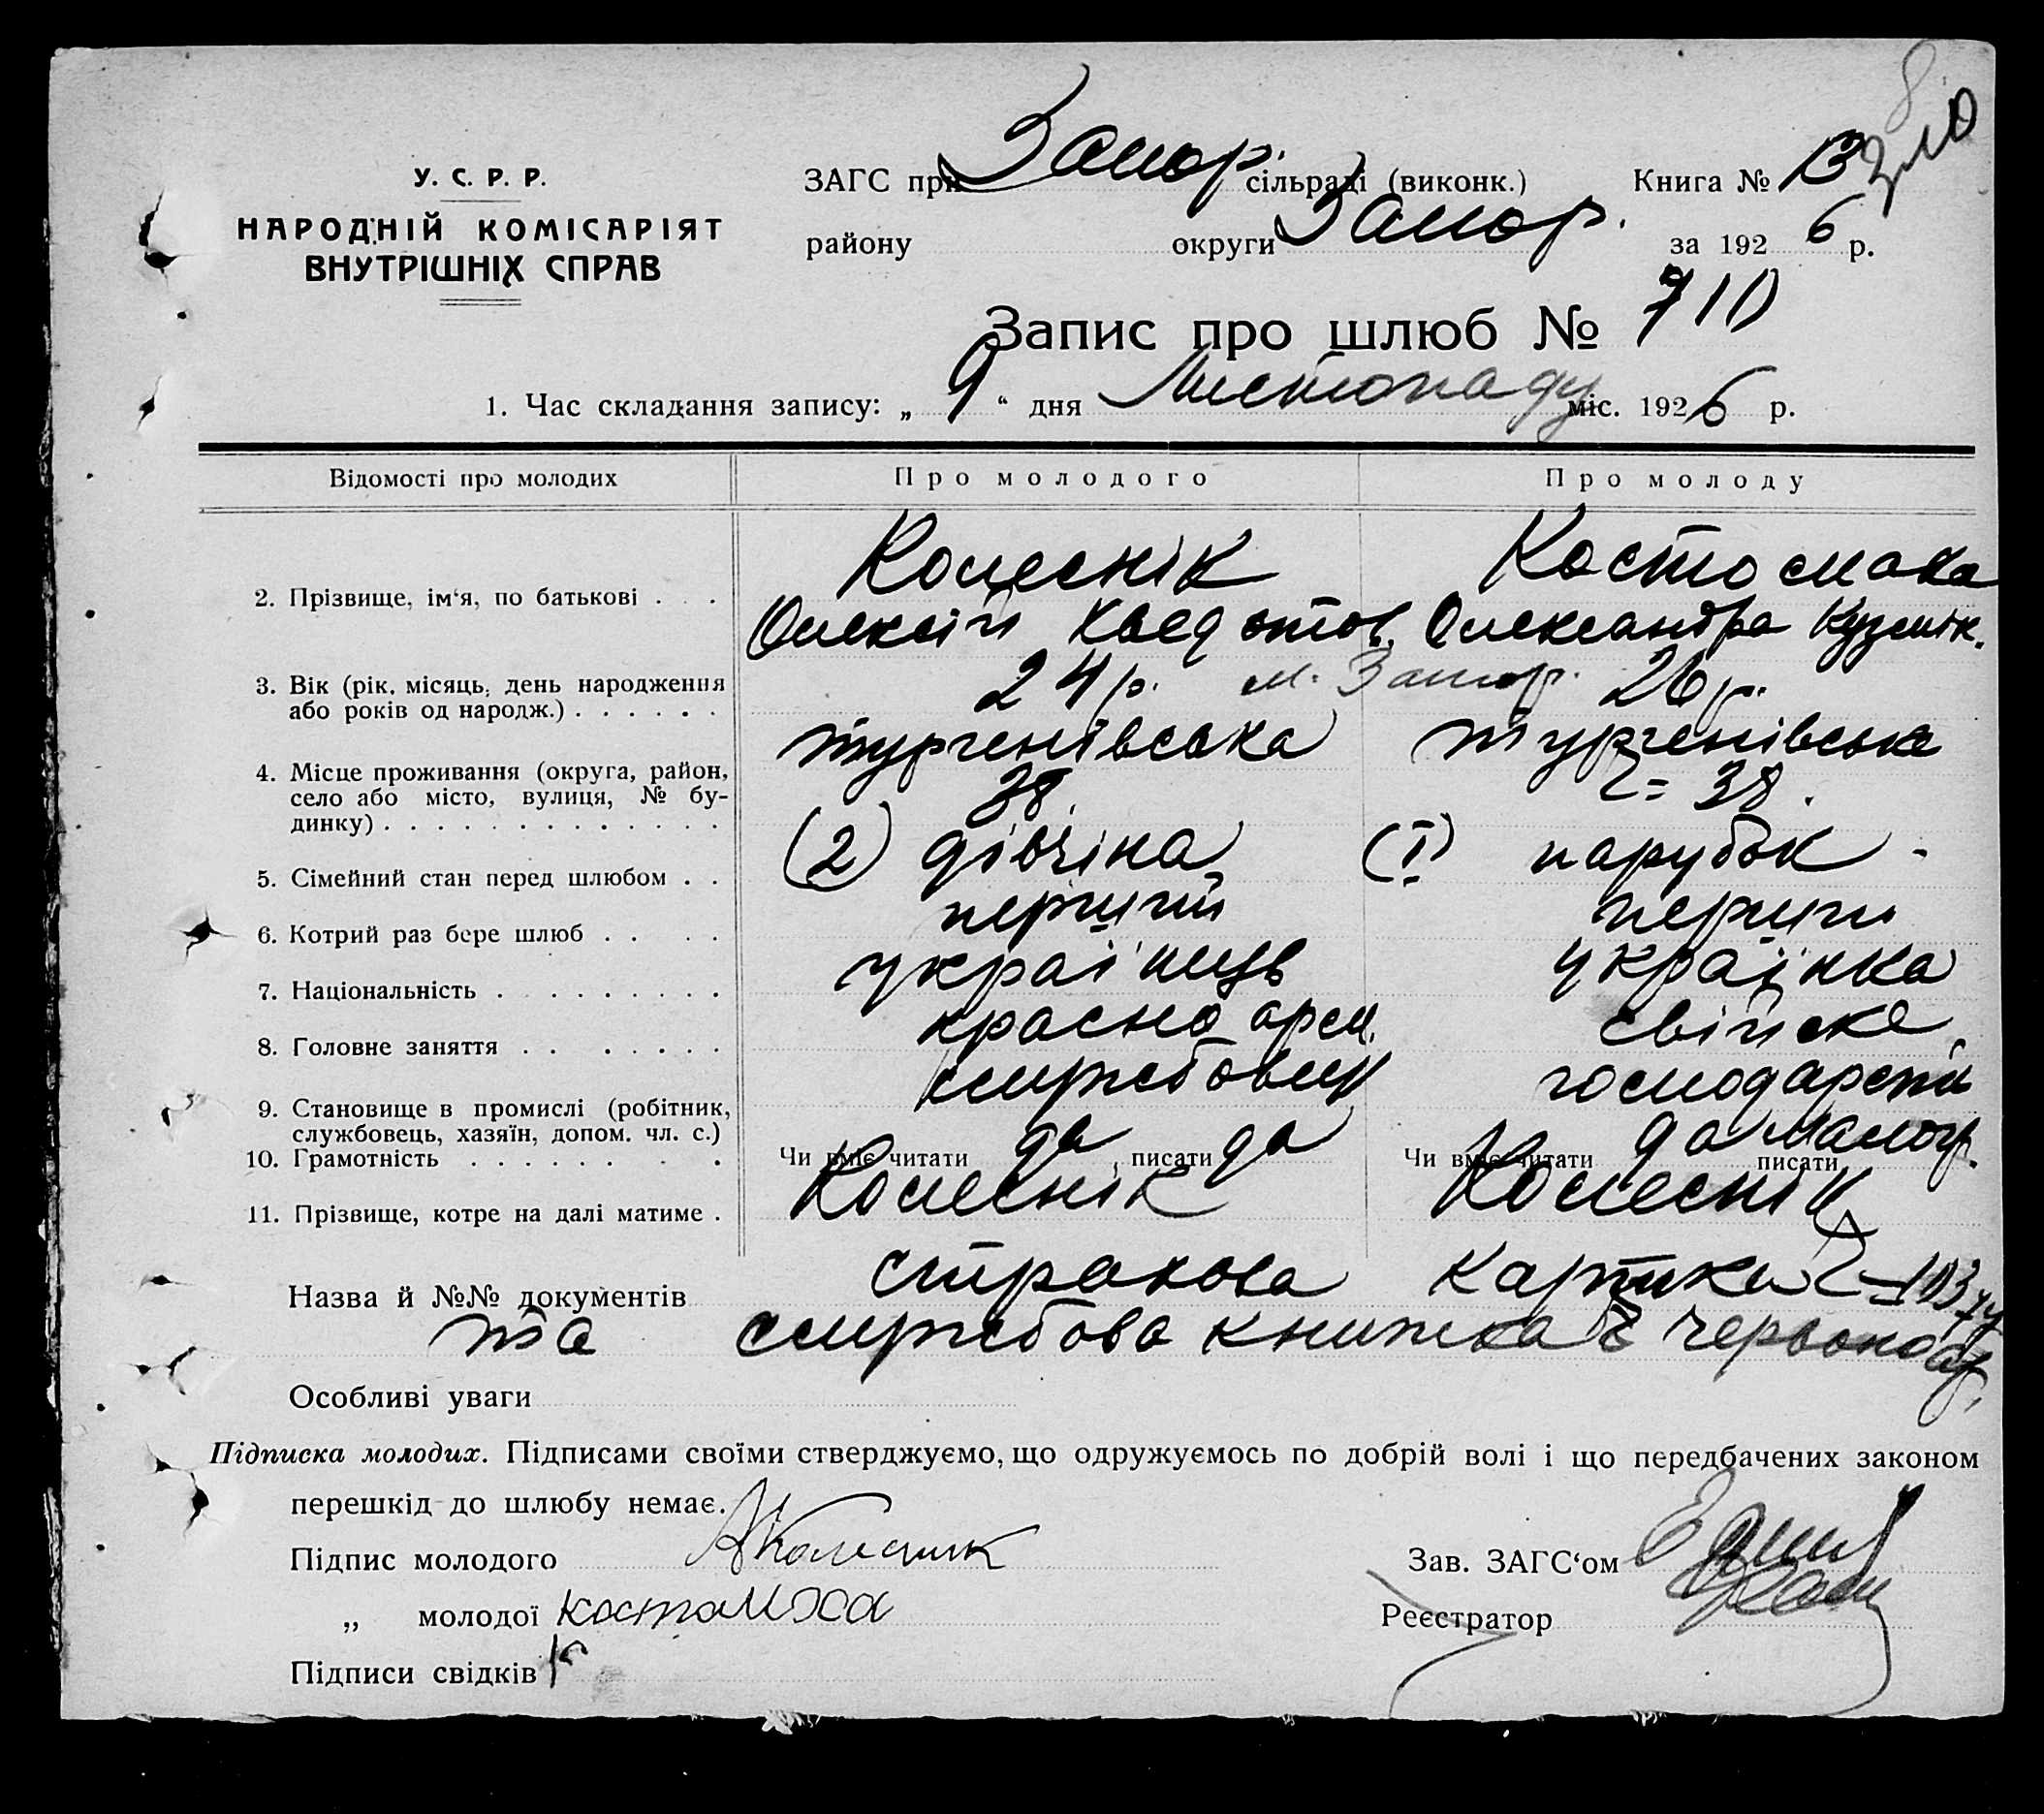 У. С. Р. Р.
НАРОДНІЙ КОМІСАРІЯТ
ВНУТРІШНІХ СПРАВ
ЗАГС при Запор. сільраді (виконк.) Книга № 13
району округи Запор. за 1926 р.
Запис про шлюб № 710
1. Час складання запису: „ 9 “ дня Листопаду міс. 1926 р.
Відомості про молодих Про молодого Про молоду
2. Прізвище, ім‘я, по батькові . . . Колеснік
Олексій Хведотов. Олександра Кузмін.
3. Вік (рік, місяць, день народження
або років од народж.) . . . . . . 24 р. м. Запор. 26 р.
4. Місце проживання (округа, район,
село або місто, вулиця, № бу-
динку) . . . . . . . . . . . . . Тургенівська 38. Тургенівська 38.
5. Сімейний стан перед шлюбом . . (2) дівчіна (I) парубок -
6. Котрий раз бере шлюб . . . . перший перший
7. Національність . . . . . . . . . українець українка
8. Головне заняття . . . . . . . красно арм. свійске
9. Становище в промислі (робітник,
службовець, хазяїн, допом. чл. с.) службовец господарств
10. Грамотність . . . . . . . . Чи вміє читати да, писати да Чи вміє читати да писати малогр.
11. Прізвище, котре на далі матиме . Колеснік Колеснік
Назва й №№ документів страхова картка
та службова книжка червоноар.
Особливі уваги
Підписка молодих. Підписами своїми стверджуємо, що одружуємось по добрій волі і що передбачених законом
перешкід до шлюбу немає.
Підпис молодого АКолесник Зав. ЗАГС‘ом
„ молодої Реєстратор
Підписи свідків